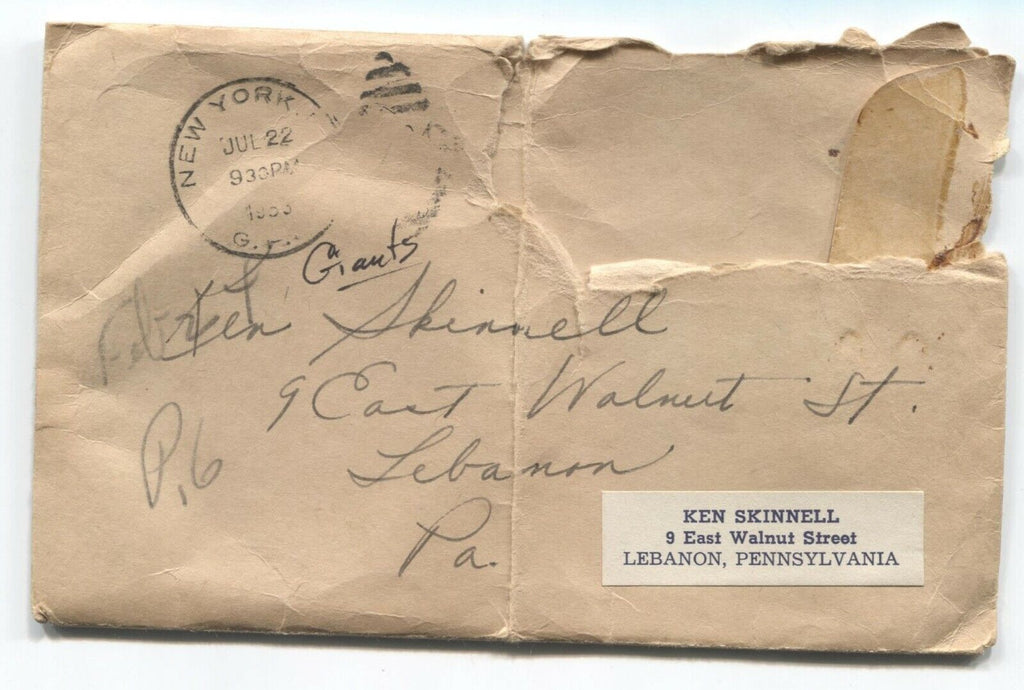 NEW YORK
JUL 22
930PM
Giants
Ken Skinnell
9 East Walnut St.
P.6
Lebanon
Pa.
KEN SKINNELL
9 East Walnut Street
LEBANON, PENNSYLVANIA